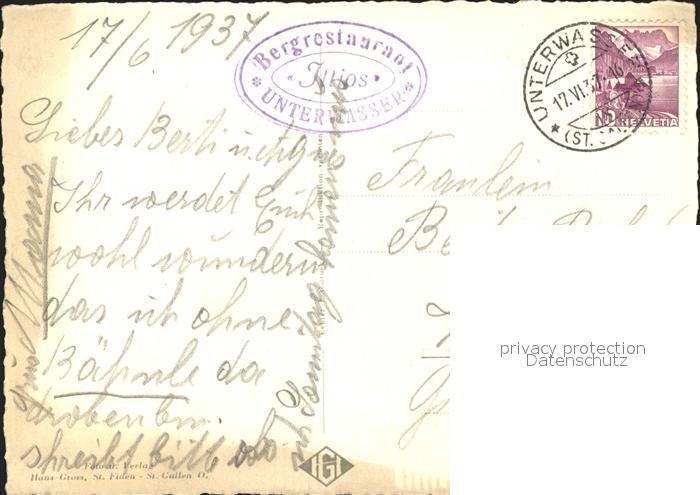 17/6 1937
Bergrestaurant
Iltios
UNTERWASSER
UNTERWASSER
17.VI.37-16
(ST.
10 HELVETIA
Liebes Berti u.
Ihr werdet Euch
wohl wundern
das ich ohne
Bähnle da
droben bin.
schreibt bitte ob
ihr Sonntag kommt
Gruss Mama
Fräulein
privacy protection
Datenschutz
Verlag
Hans Gross, St. Fiden - St. Gallen O.